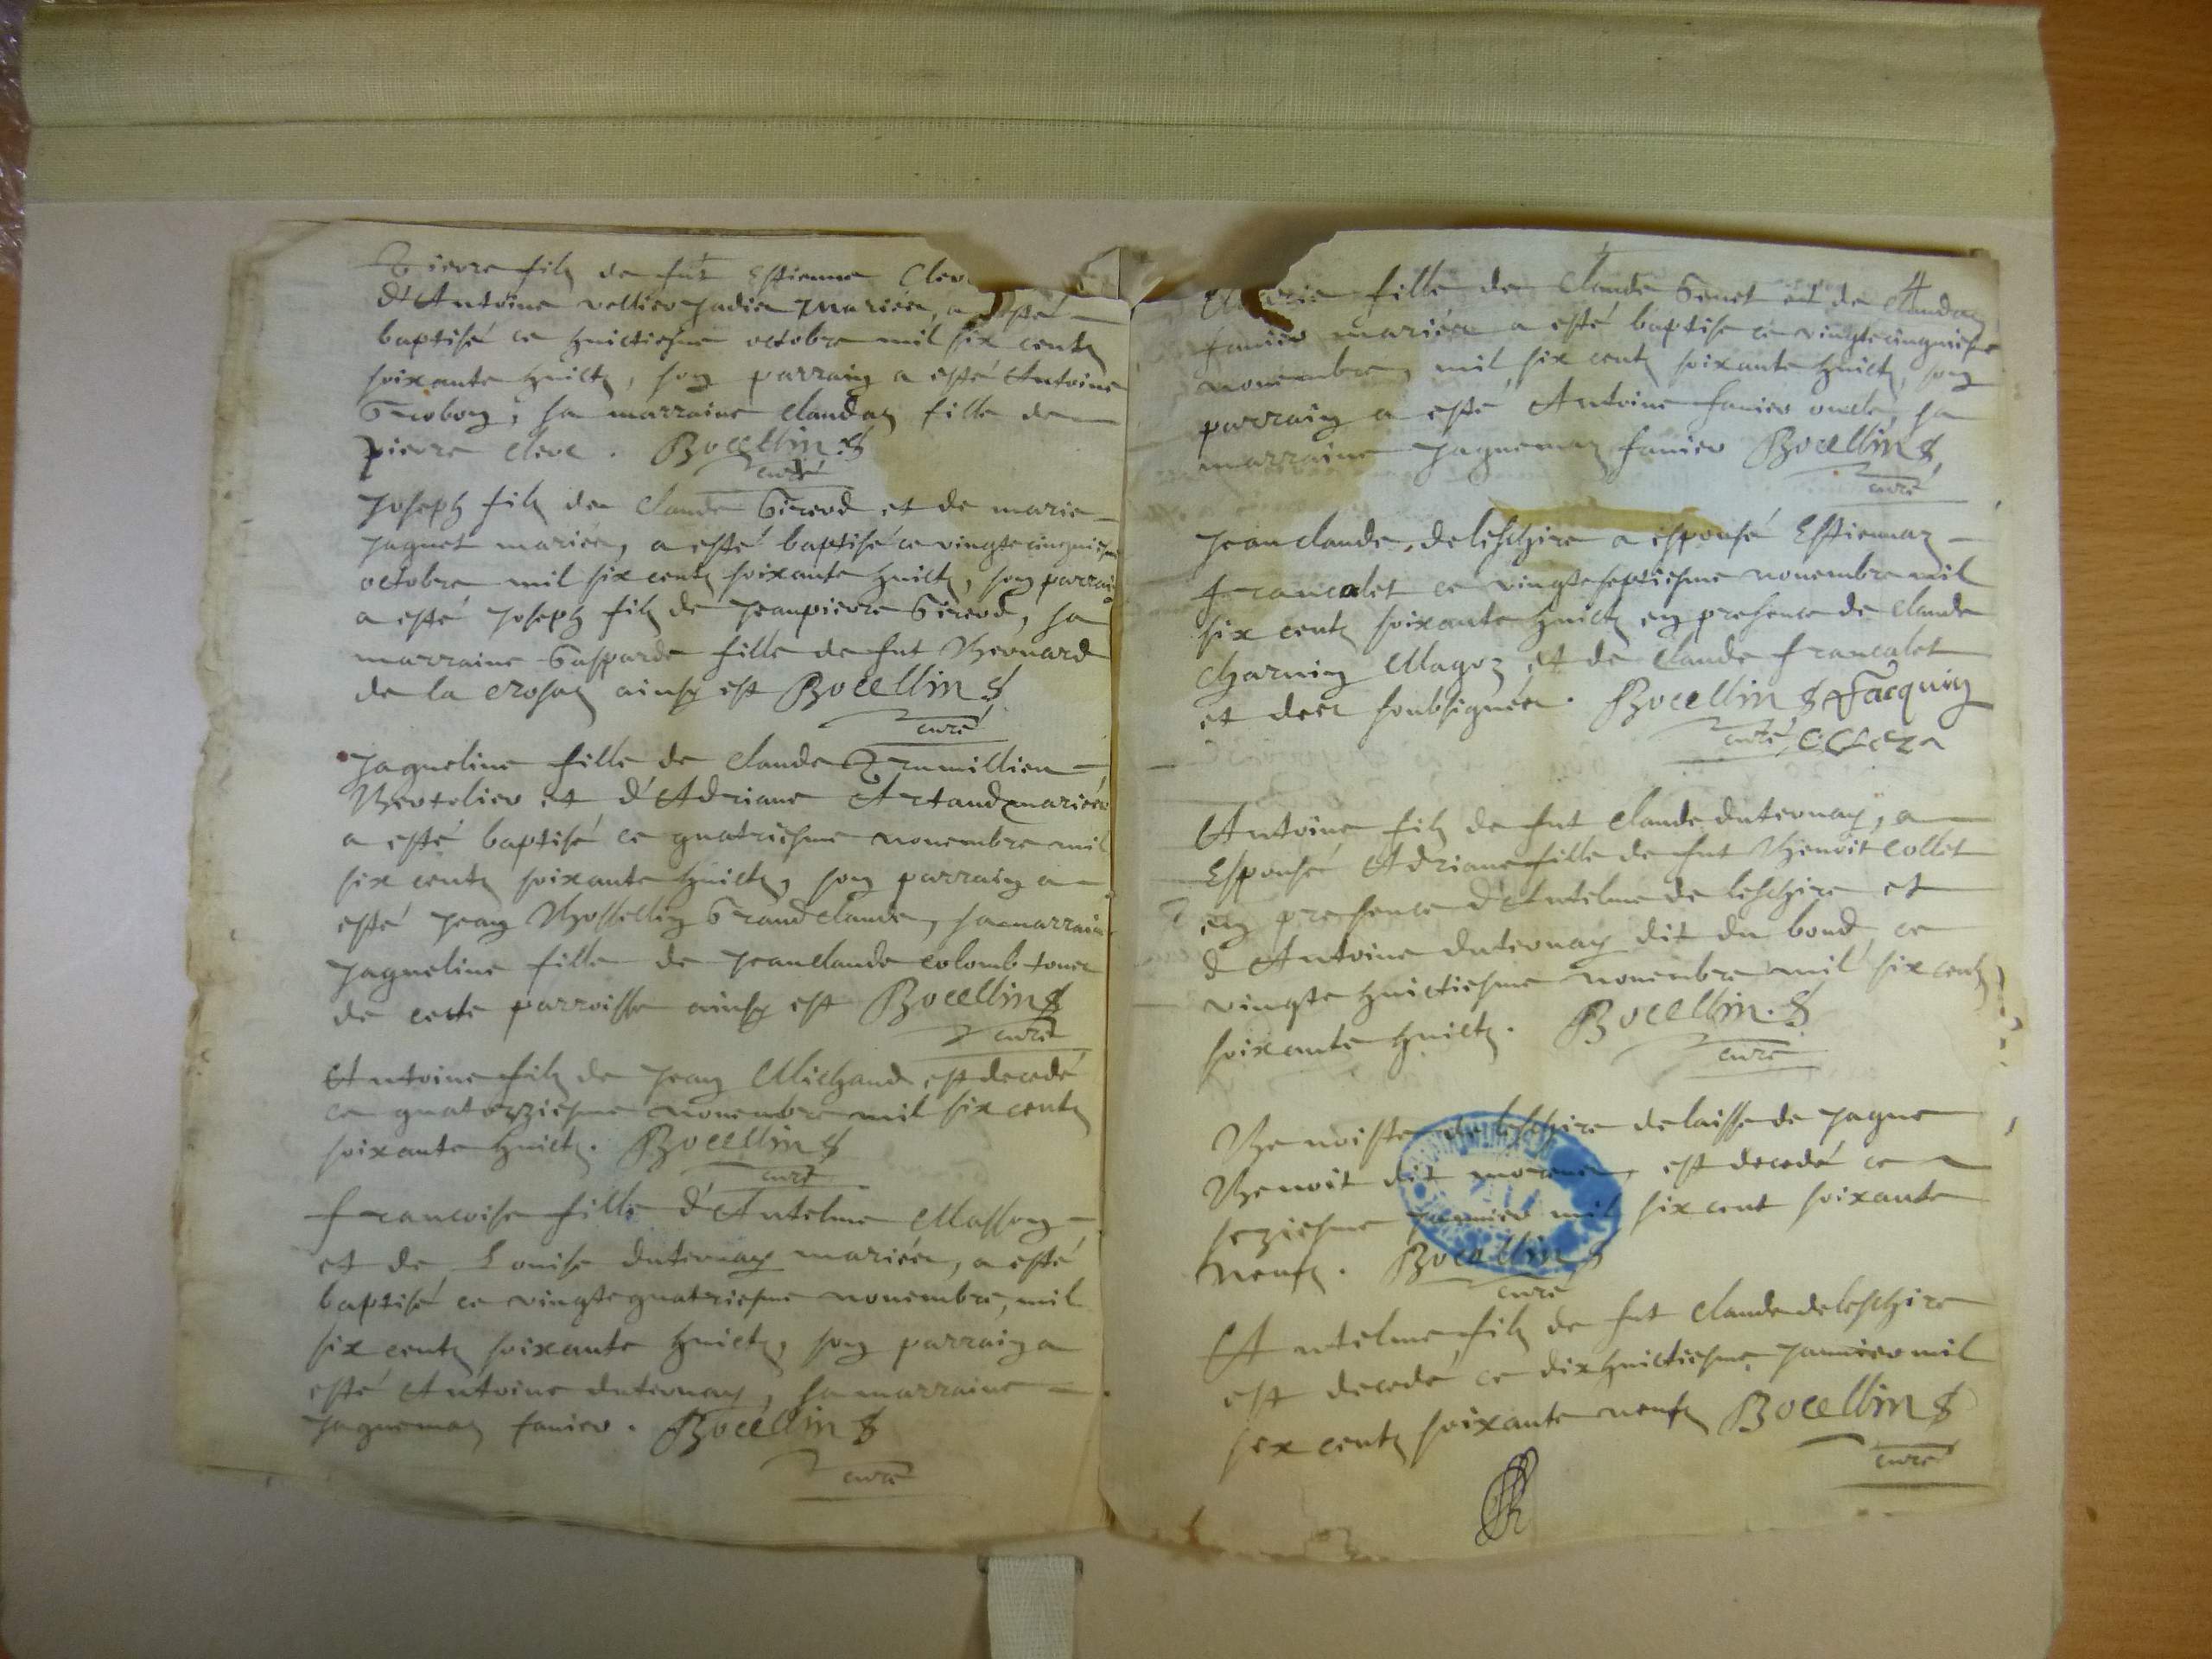 Pierre filz de fut Estienne Clerc
d'Antoine vellier jadis mariés, a esté
baptisé ce huictiesme octobre mil six centz
soixante huictz, son parrain a esté Antoine
sa marraine Claudaz fille de
pierre clerc. Bocellin
curé
Joseph filz de Claude Girerd et de marie
Jaquet mariés, a esté baptisé ce vingtecinquiesme
octobre mil six centz soixante huictz, son parrain
a esté Joseph filz de Jeanpierre Girerd, sa
marraine Gasparde fille de fut Bernard
de la crosaz ainsy est Bocellin
curé
Jaqueline fille de Claude Trumillien
Bertelier et d'Adriane Artaud mariés
a esté baptisé ce quatriesme novembre mil
six centz soixante huictz, son parrain a
esté Jean Bossellin Grandclaude, sa marraine
Jaqueline fille de Jeanclaude colomb tous
de ceste parroisse ainsy est Bocellin
curé
Antoine filz de Jean Michaud est decedé
ce quatorziesme novembre mil six centz
soixante huictz. Bocellin
curé
francoise fille d'Antelme Masson
et de Louise duternay mariés, a esté
baptisé ce vingtequatriesme novembre, mil
six centz soixante huictz, son parrain a
esté Antoine duternay, sa marraine
Jaquemaz fanier. Bocellin
curé
4
fille de Claude Genet et de Claudaz
fanier mariés a esté baptisé ce vingtecinquiesme
novembre mil six centz soixante huictz, son
parrain a esté Antoine fanier oncle, sa
marraine Jaquemaz fanier Bocellin
curé
Jeanclaude deleschire a espousé Estiennaz
francalet ce vingteseptiesme novembre mil
six centz soixante huictz en presence de Claude
charvin Magoz et de Claude francalet
et des soubsignés. Bocellin Jacquin
curé
Antoine filz de fut Claude duternay, a
Espousé Adriane fille de fut Benoit Collet
en presence d'Antelme de leschire et
d'Antoine duternay dit du bond ce
vingte huictiesme novembre mil six centz
soixante huictz. Bocellin
curé
Benoiste de leschire delaissé de Jaque
Benoit dit est decedé ce
seziesme janvier mil six cent soixante
neufz. Bocellin
curé
Antelme filz de fut Claude deleschire
est decedé ce dixhuictiesme janvier mil
six centz soixante neufz Bocellin
curé